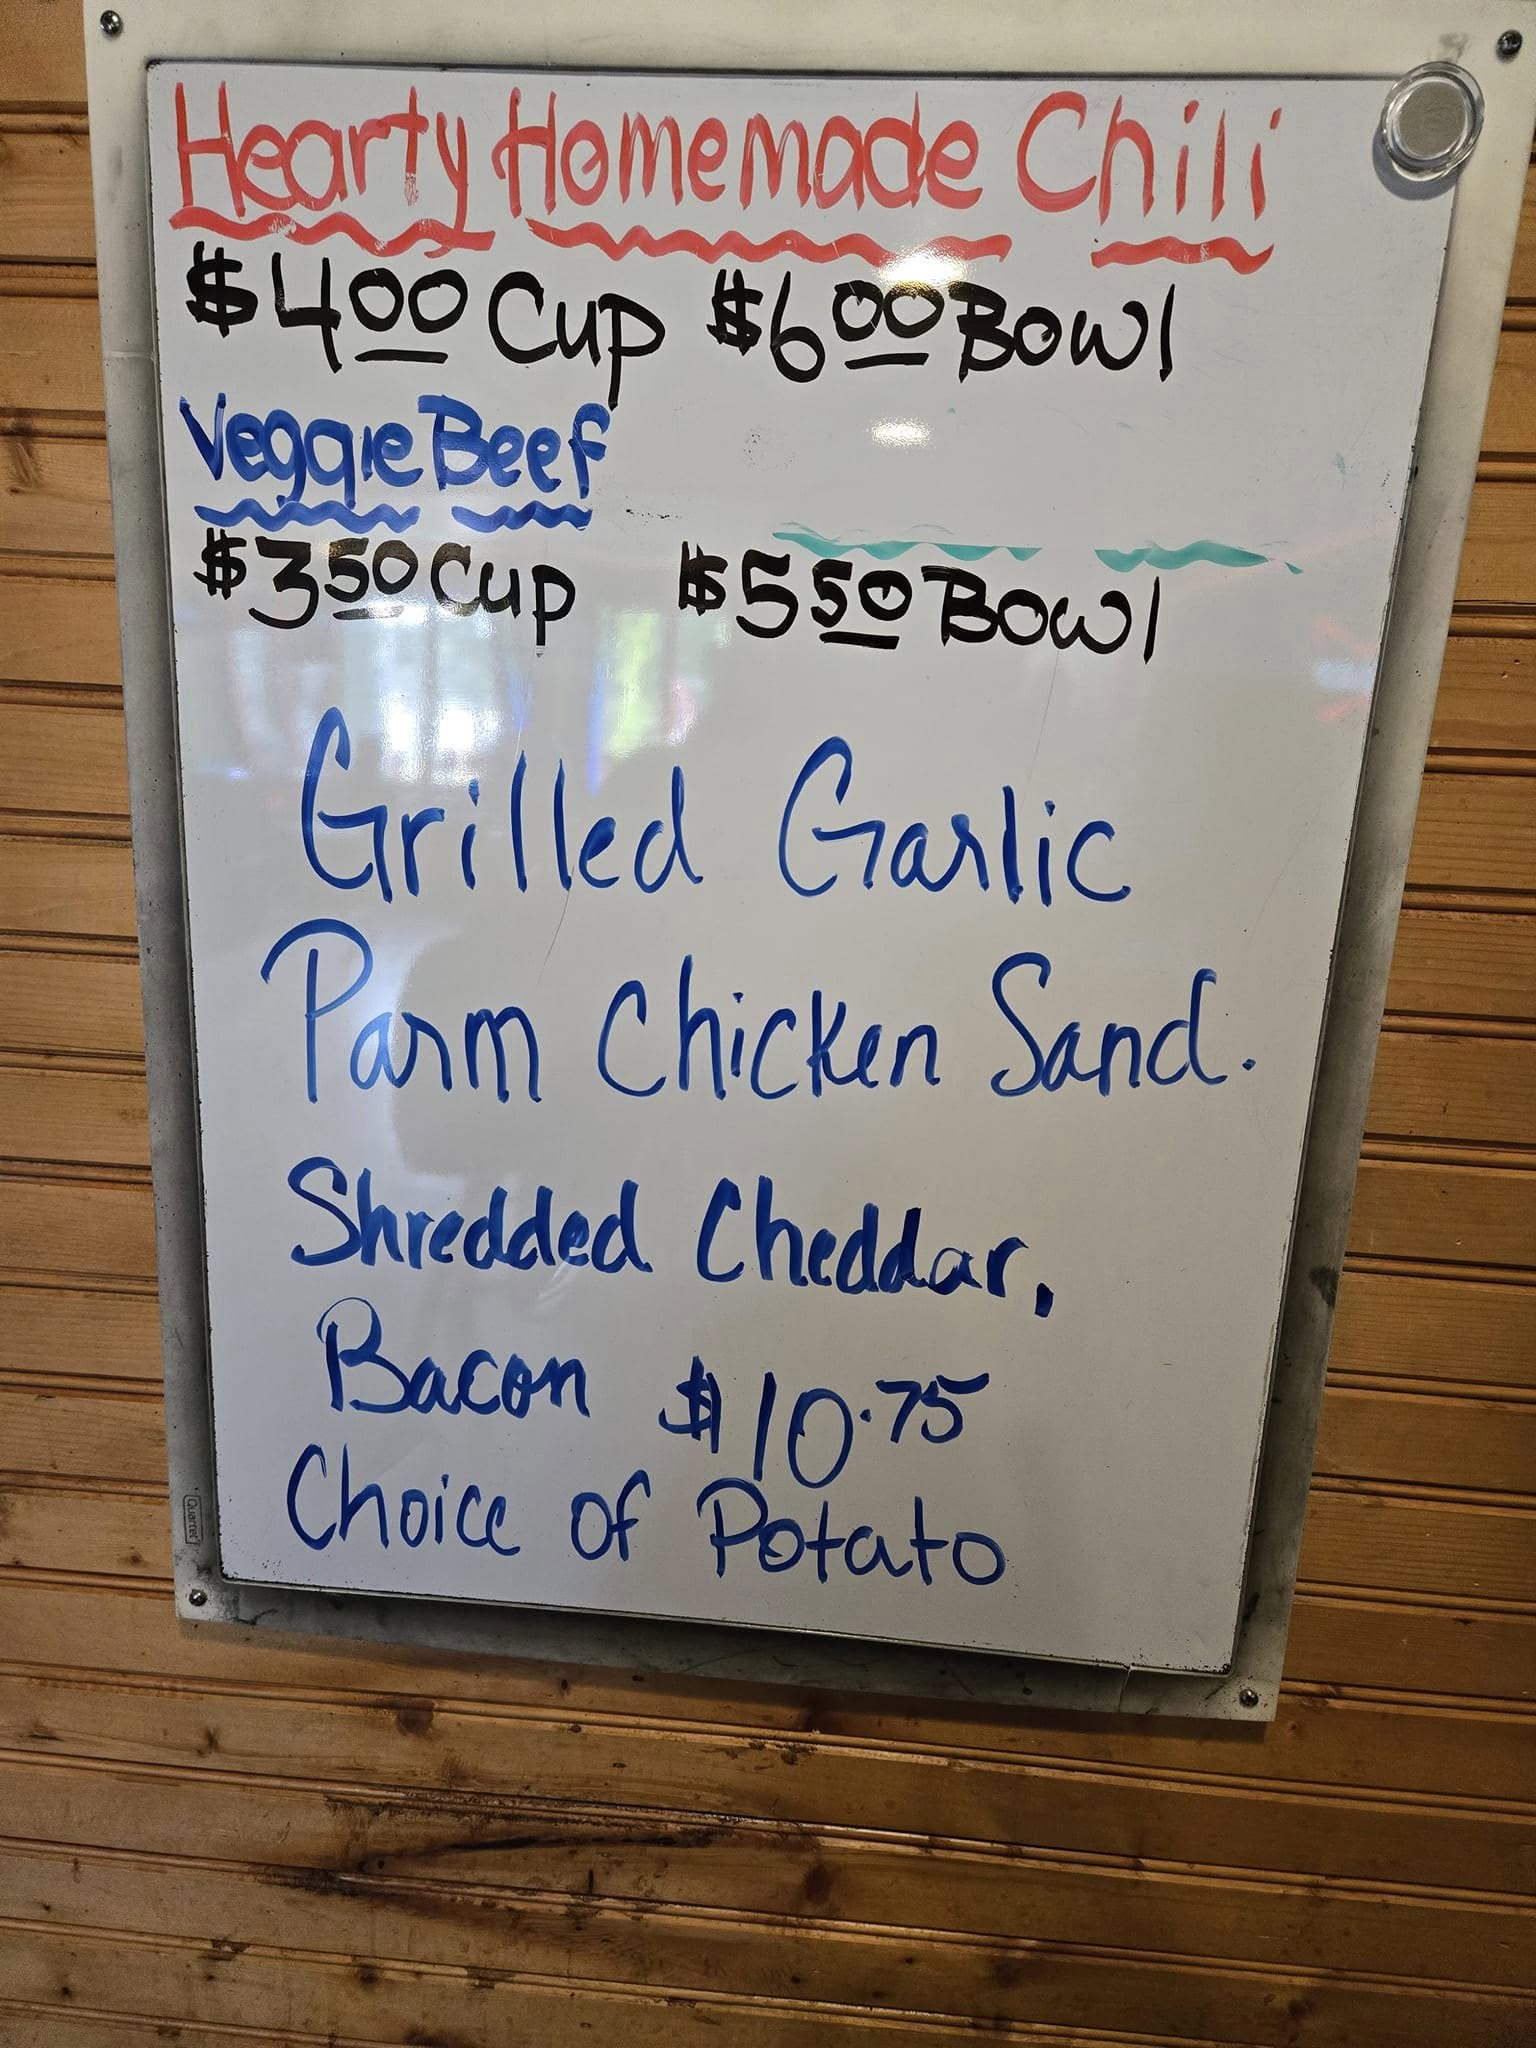 Hearty Homemade Chili
$4.00 Cup $6.00 Bowl
Veggie Beef
$3.50 Cup $5.50 Bowl
Grilled Garlic
Parm Chicken Sand.
Shredded Cheddar,
Bacon $10.75
Choice of Potato
Quartet